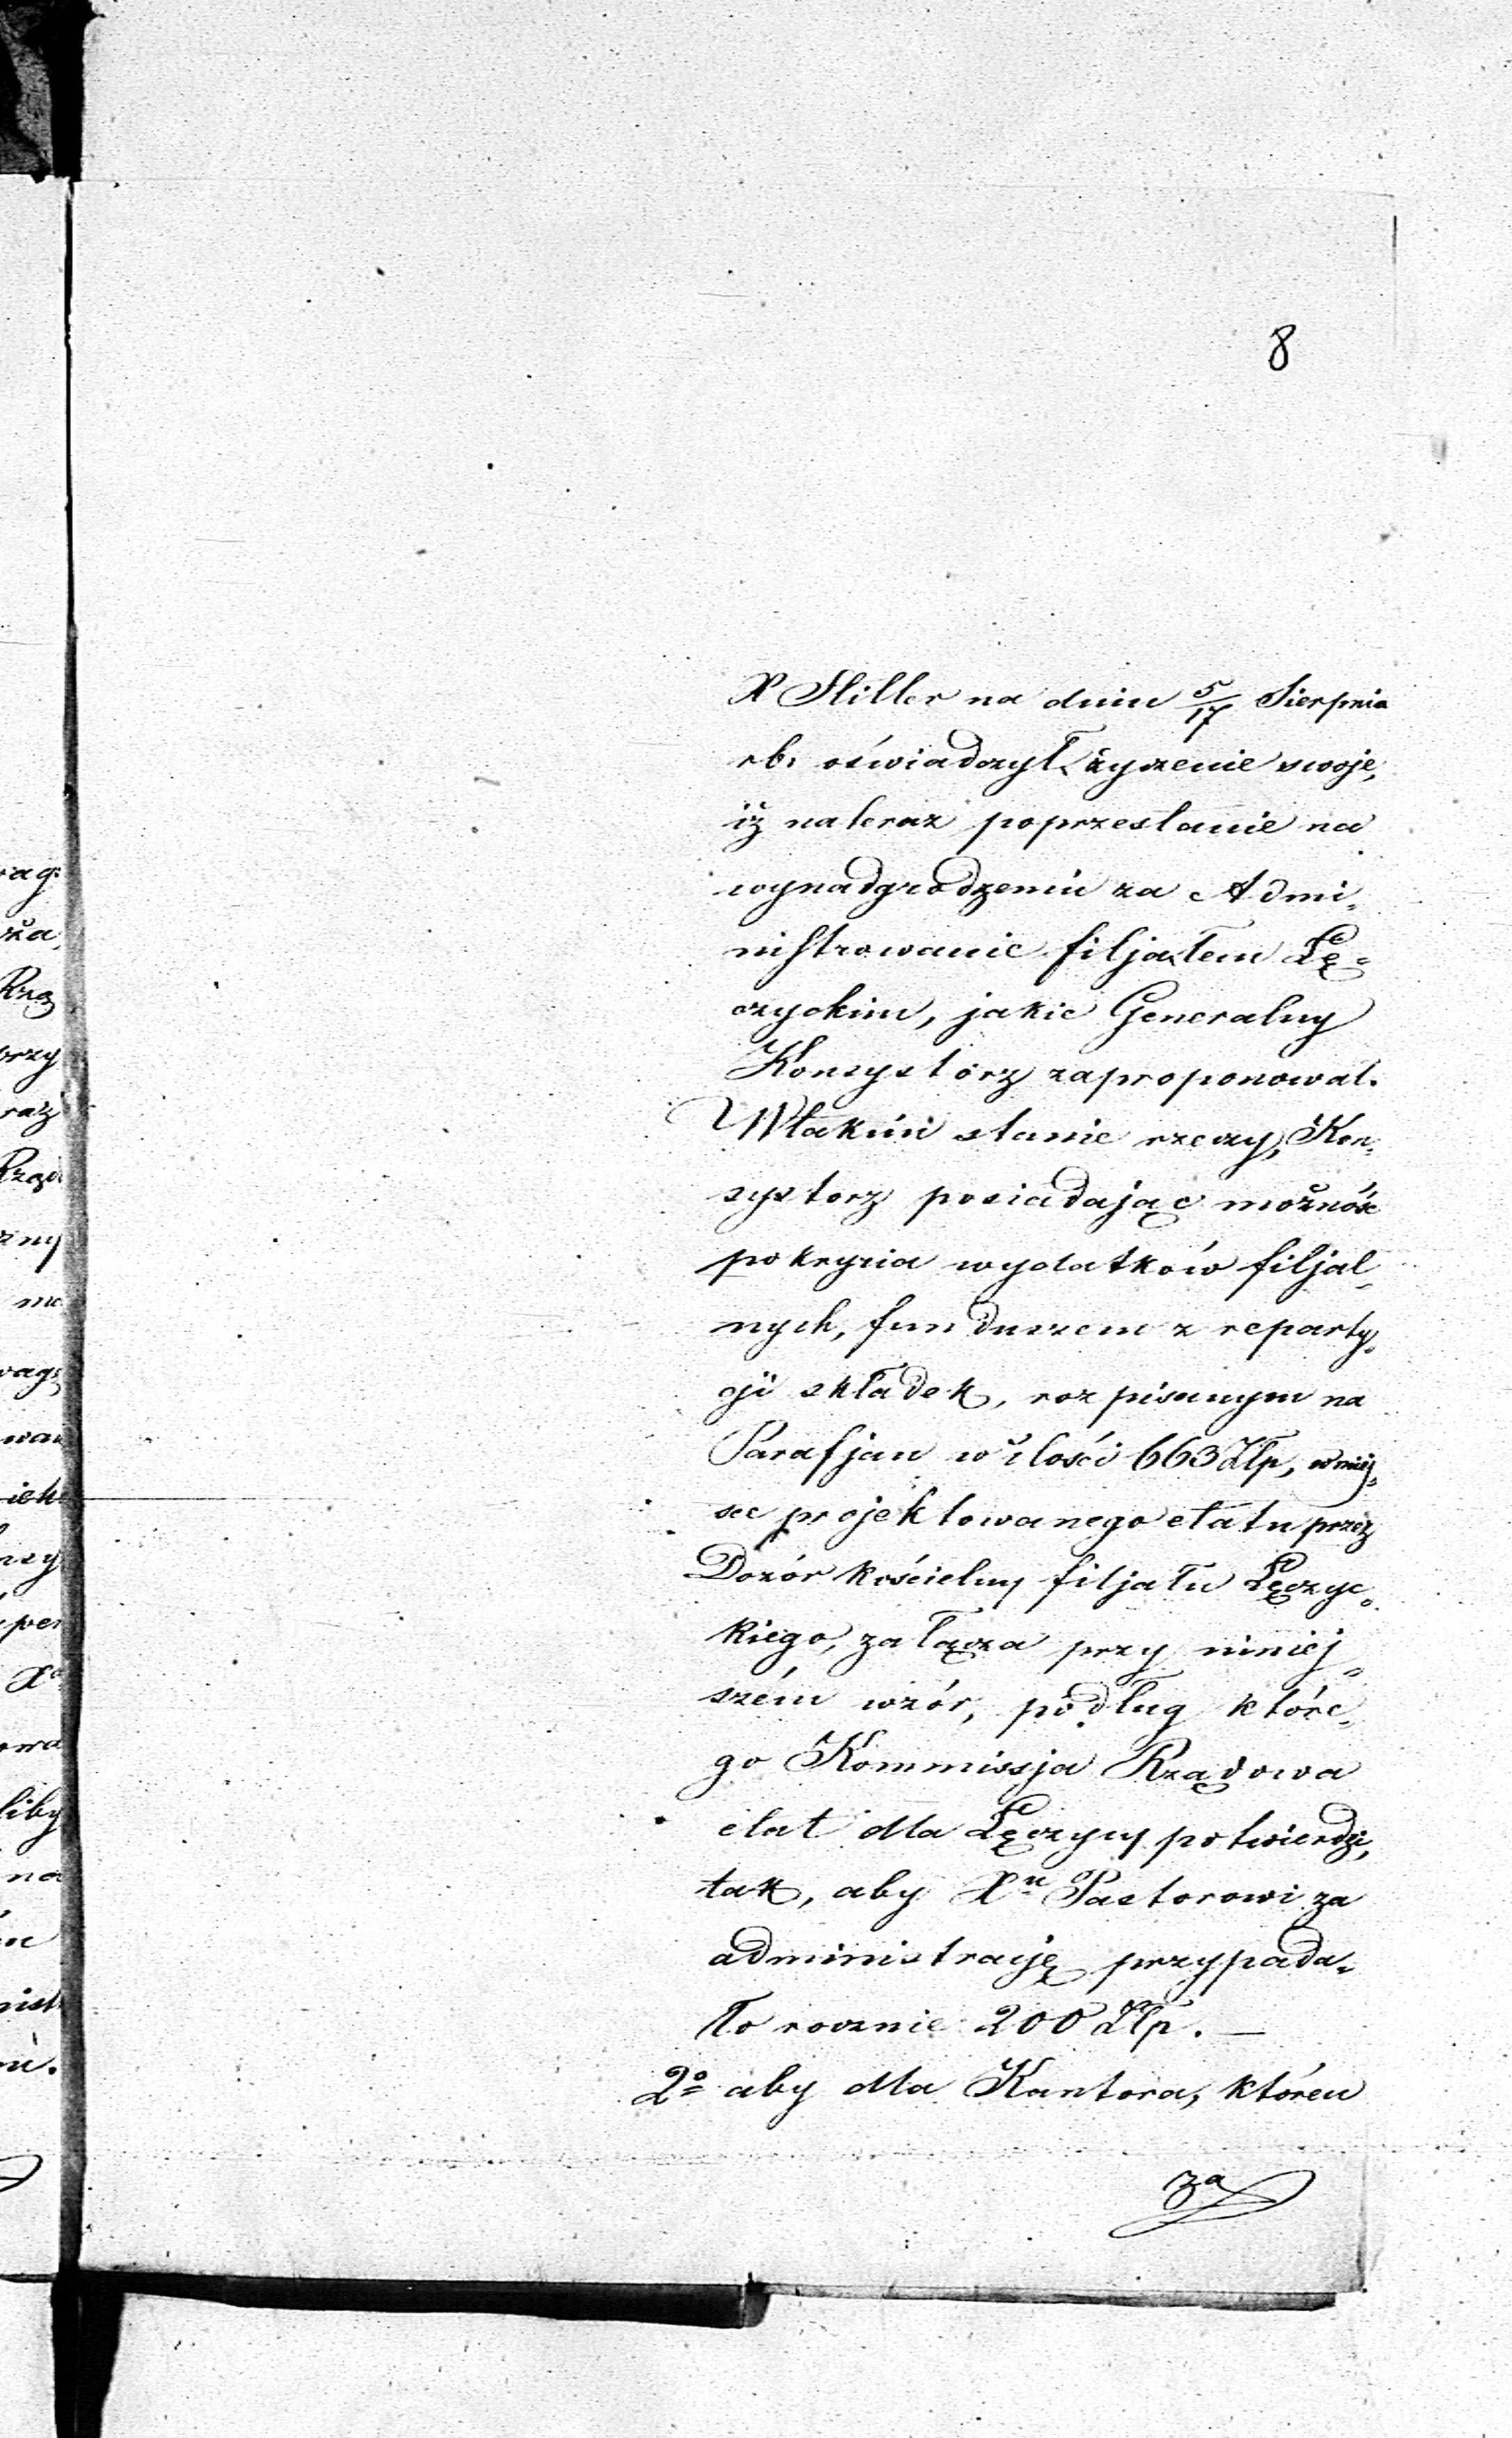 8
X Hiller na dniu 5/17 Sierpnia
rb. oświadczył życzenie swoje,
iż nateraz poprzestanie na
wynadgrodzeniu za Admi„
nistrowanie filjałem Łę„
czyckim, jakie Generalny
Konsystorz zaproponował.
W takim stanie rzeczy, Kon„
systorz posiadając możność
pokrycia wydatków filjal„
nych, funduszem z reparty„
cji składek, rozpisanym na
Parafjan w ilości 663 Złp, w miej„
sce projektowanego etatu przez
Dozór kościelny filjału Łęczyc„
kiego, załącza przy niniej„
szém wzór, podług które„
go Kommissja Rządowa
etat dla Łęczycy potwierdzi,
tak, aby Xu Pastorowi za
administrację przypada„
ło rocznie 200 Złp. —
2o aby dla Kantora, któren
za